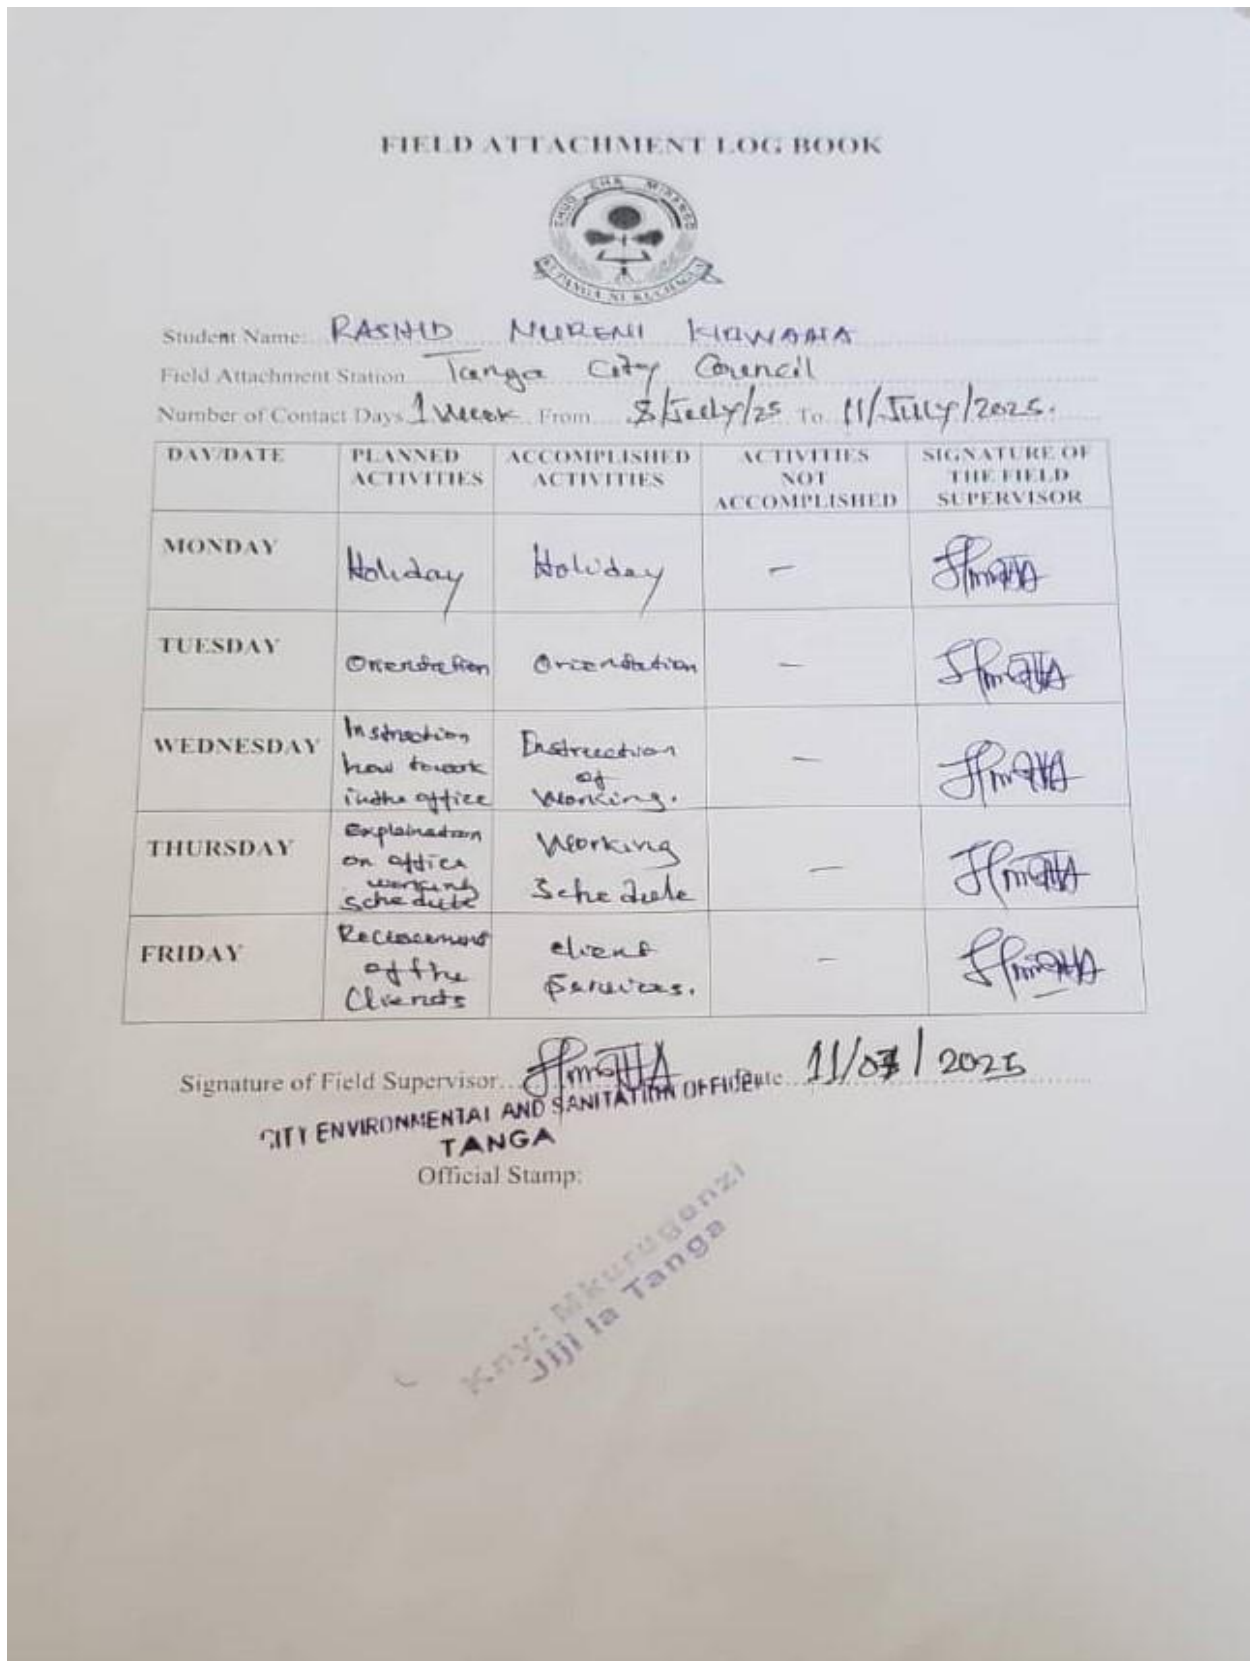 FIELD ATTACHMENT LOG BOOK
CHUO CHA MIPANGO
KUPANGA NI KUCHAGUA
Student Name: RASHID NURENI
Field Attachment Station Tanga City Council
Number of Contact Days 1 Week From 8/July/25 To 11/July/2025.
DAY/DATE
PLANNED
ACTIVITIES
ACCOMPLISHED
ACTIVITIES
ACTIVITIES
NOT
ACCOMPLISHED
SIGNATURE OF
THE FIELD
SUPERVISOR
MONDAY
Holiday
Holiday
–
TUESDAY
Orientation
Orientation
–
WEDNESDAY
Instruction
how to work
in the office
Instruction
of
Working.
–
THURSDAY
Explaination
on office
working
schedule
Working
Schedule
–
FRIDAY
of the
Clients
client
Services.
–
Signature of Field Supervisor Date 11/07/2025
CITY ENVIRONMENTAL AND SANITATION OFFICER
TANGA
Official Stamp:
Kny: Mkurugenzi
Jiji la Tanga